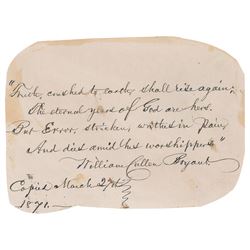 "Truth, crushed to earth, shall rise again;
The eternal years of God are hers.
But Error, stricken, writhes in pain,
And dies amid her worshippers"
William Cullen Bryant
Copied March
1871.